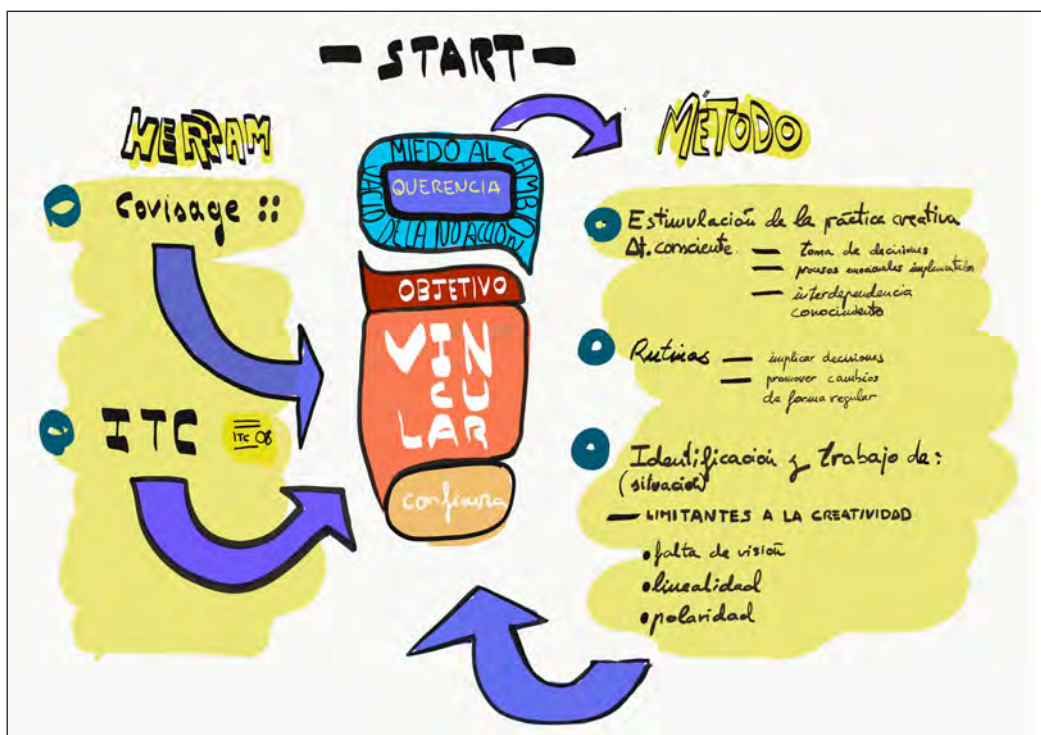 — START —
HERRAM
Covisage ::
ITC
ITC 08
MIEDO AL CAMBIO
VACIO DE LA NO ACCIÓN
QUERENCIA
OBJETIVO
VIN
CU
LAR
confianza
MÉTODO
Estimulación de la práctica creativa
At. consciente — toma de decisiones
— procesos emocionales implementados
— interdependencia
conocimiento
Rutinas — implicar decisiones
— promover cambios
de forma regular
Identificación y trabajo de:
(situación)
— LIMITANTES A LA CREATIVIDAD
• falta de visión
• linealidad
• polaridad